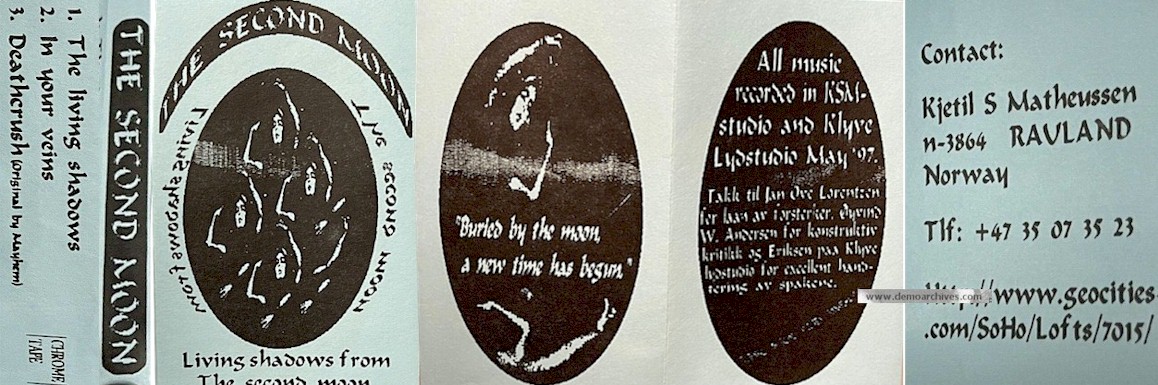 1. The living shadows
2. In your veins
3. Deathcrush (original by Mayhem)
CHROME
TAPE
THE SECOND MOON
THE SECOND MOON
Living shadows from
THE SECOND MOON
Living shadows from
The second moon
"Buried by the moon,
a new time has begun."
All music
recorded in KSM-
studio and Klyve
Lydstudio May '97.
Takk til Jan Ove Lorentzen
for laan av forsterker, Øyvind
W. Andersen for konstruktiv
kritikk og Eriksen paa Klyve
lydstudio for excellent hand-
tering av spakene.
www.demoarchives.com
Contact:
Kjetil S Matheussen
n-3864 RAULAND
Norway
Tlf: +47 35 07 35 23
http://www.geocities
.com/SoHo/Lofts/7015/